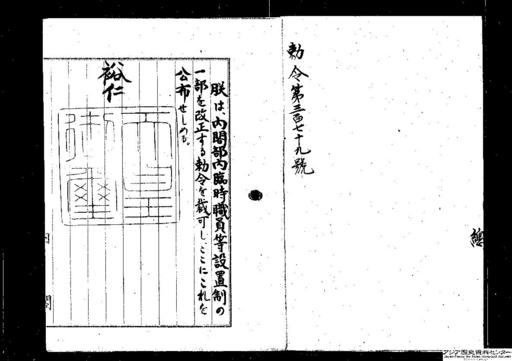 勅令第三百七十九號
朕は内閣部内臨時職員等設置制の
一部を改正する勅令を裁可し、ここにこれを
公布せしめる。
裕仁
天皇
御璽
内
閣
アジア歴史資料センター